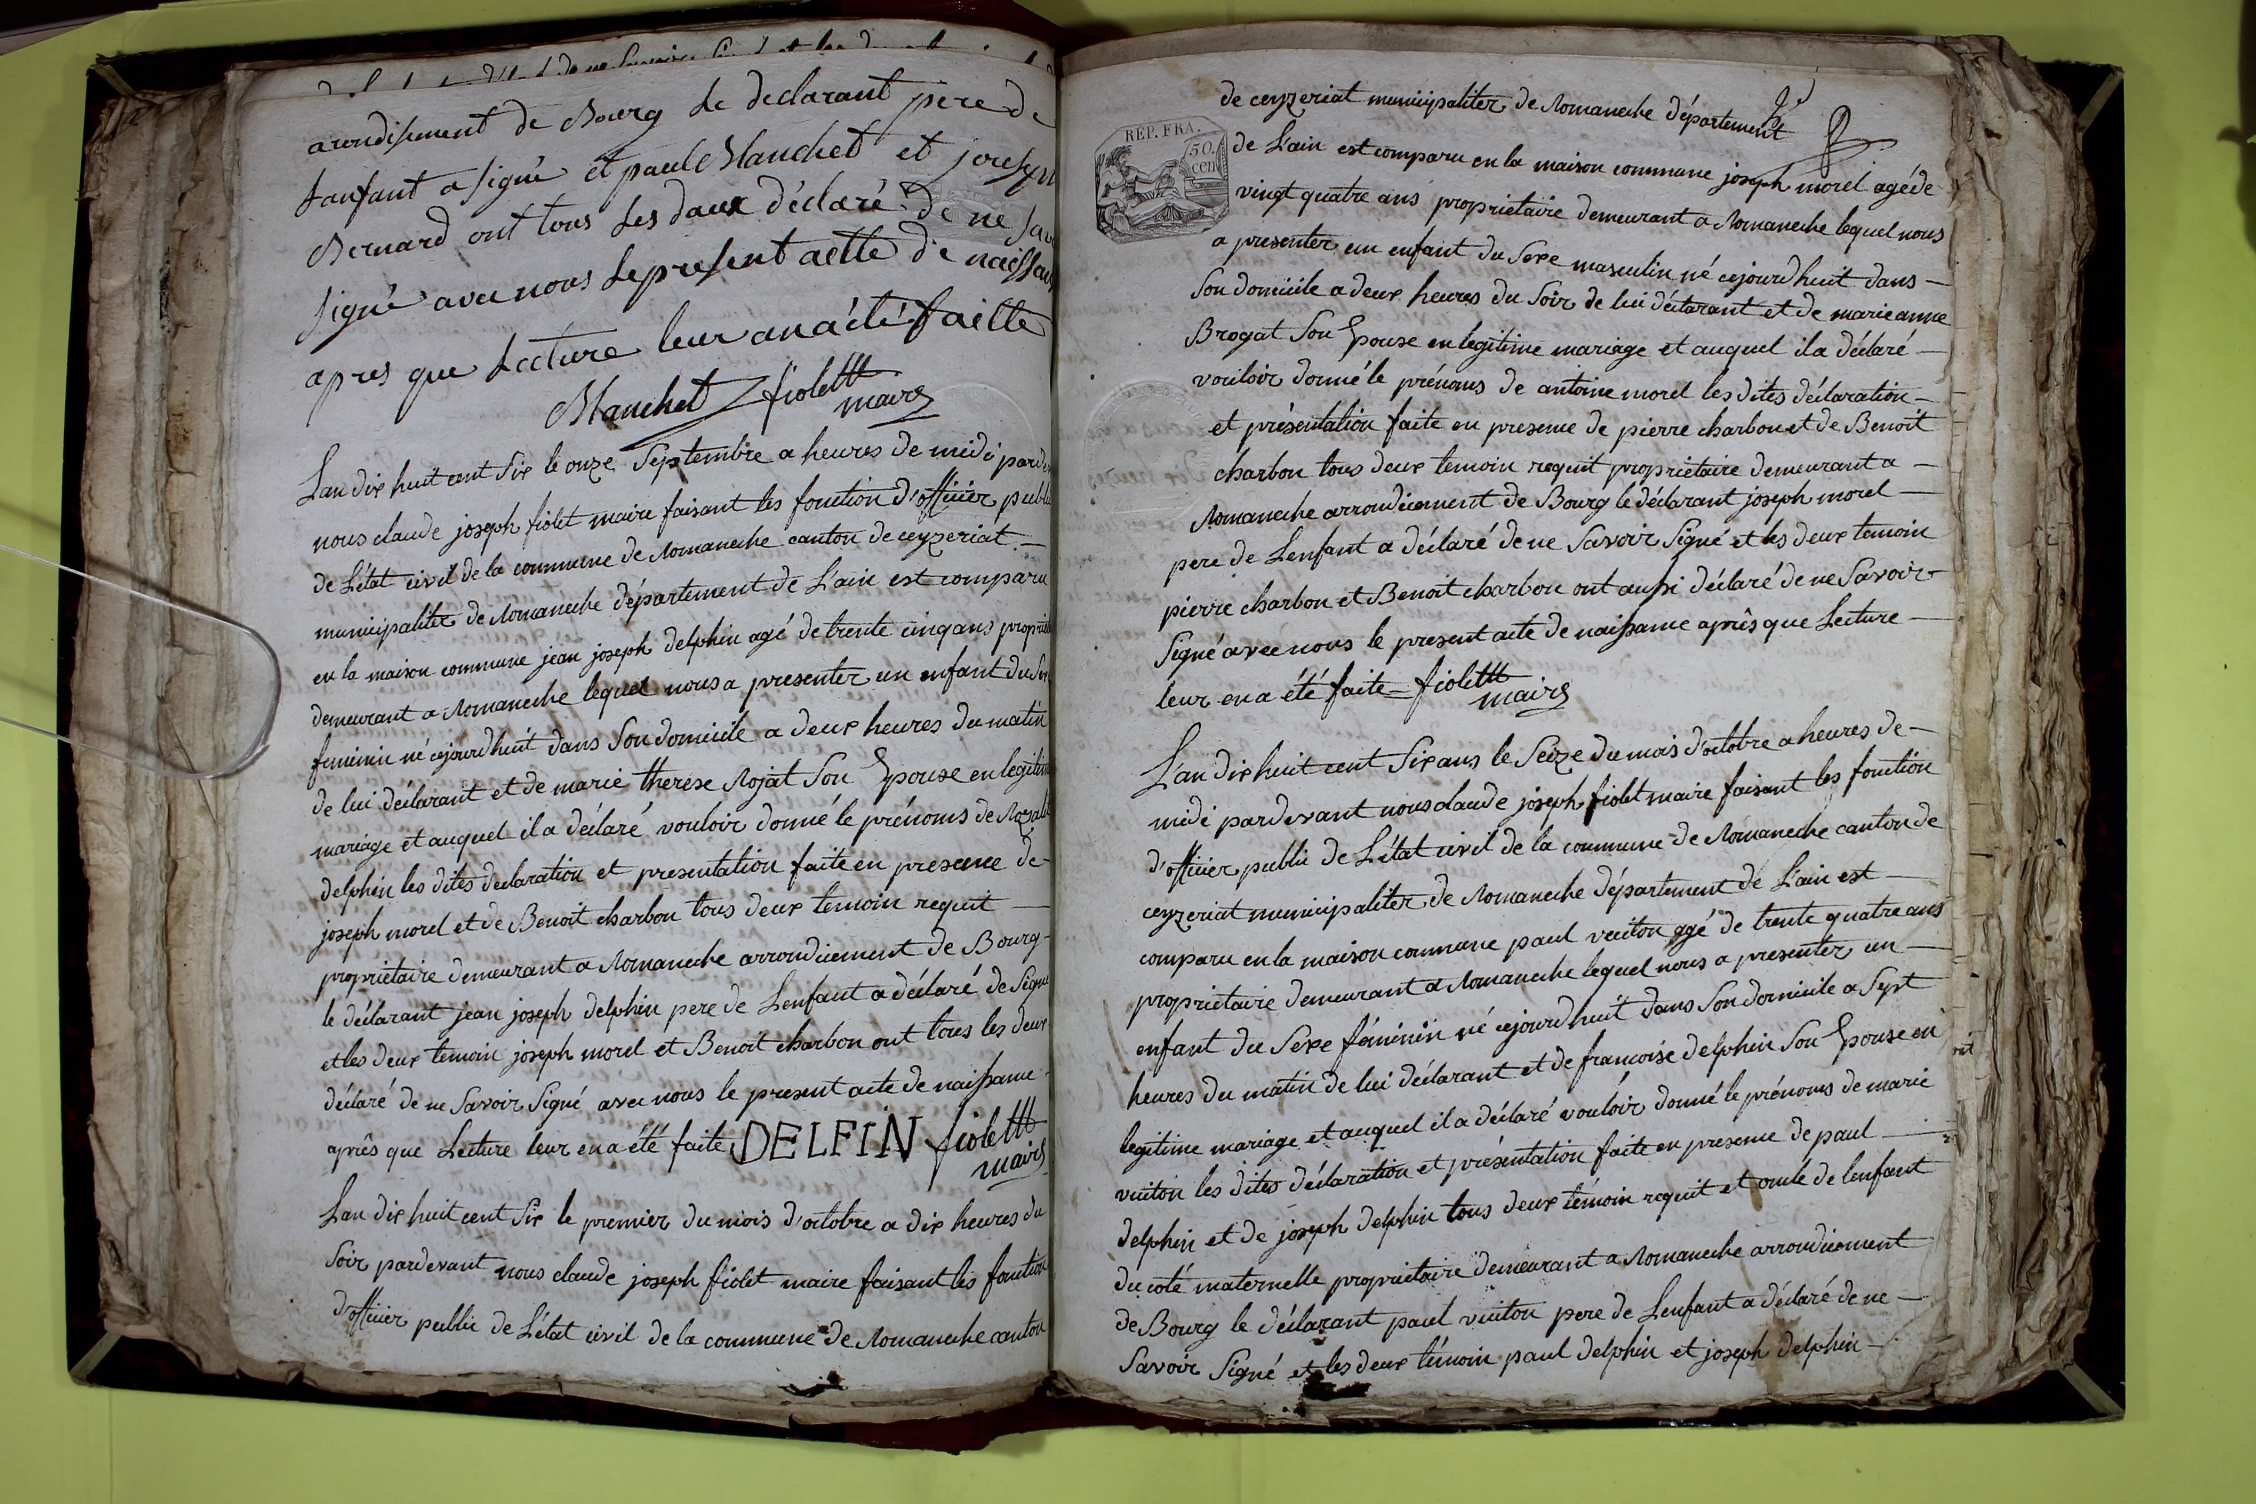 arondisement de Bourg le declarant pere de
lanfant a signé et paul Blanchet et joresph
Bernard ont tous les daux déclaré de ne sav
signé avec nous le present actte de naissan
apres que lecture leur an a été faitte
Blanchet fiolet
maire
Lan dix huit cent six le onze Septembre a heures de midi parde
nous claude joseph fiolet maire faisant les fonction d'officier publi
de L'état civil de la commune de Romaneche canton de ceyzeriat
municipaliter de Romaneche département de L'ain est comparu
en la maison commune jean joseph delphin agé de trente cinq ans propriét
demeurant a Romaneche lequel nous a presenter un enfant du Sex
feminin né cejourdhuit dans Son domicile a deux heures du matin
de lui déclarant et de marie therese Rojat Son Epouse en legitime
mariage et auquel il a déclaré vouloir donné le prénoms de Rozali
delphin les dites declaration et presentation faite en presence de
joseph morel et de Benoit charbon tous deux temoin requit
propriétaire demeurant a Romaneche arrondicement de Bourg
le déclarant jean joseph delphin pere de Lenfant a déclaré de Signé
et les deux temoin joseph morel et Benoit charbon ont tous les deux
déclaré de ne Savoir Signé avec nous le present acte de naissance
après que Lecture leur en a été faite DELFIN fiolet
maire
Lan dix huit cent Six le premier du mois d'octobre a dix heures du
Soir pardevant nous claude joseph fiolet maire faisant les fonction
d'officier public de L'état civil de la commune de Romaneche canton
REP. FRA.
50.
cen
de ceyzeriat municipaliter de Romaneche département
de L'ain est comparu en la maison commune joseph morel agé de
vingt quatre ans propriétaire demeurant a Romaneche lequel nous
a presenter un enfant du Sexe masculin né cejourdhuit dans
Son domicile a deux heures du Soir de lui déclarant et de marie anne
Brogat Son Epouse en legitime mariage et auquel il a déclaré
vouloir donné le prénoms de antoine morel les dites déclaration
et présentation faite en presence de pierre charbon et de Benoit
charbon tous deux temoin requit propriétaire demeurant a
Romaneche arrondicement de Bourg le déclarant joseph morel
pere de Lenfant a déclaré de ne Savoir Signé et les deux temoin
pierre charbon et Benoit charbon ont aussi déclaré de ne Savoir
Signé avec nous le present acte de naissance après que Lecture
leur en a été faite fiolet
maire
L'an dix huit cent Six ans le Seize du mois d'octobre a heures de
midi pardevant nous claude joseph fiolet maire faisant les fonction
d'officier public de L'état civil de la commune de Romaneche canton de
ceyzeriat municipaliter de Romaneche département de L'ain est
comparu en la maison commune paul vuiton agé de trente quatre ans
propriétaire demeurant a Romaneche lequel nous a presenter un
enfant du Sexe féminin né cejourdhuit dans Son domicile a Sept
heures du matin de lui déclarant et de francoise delphin Son Epouse en
legitime mariage et auquel il a déclaré vouloir donné le prénoms de marie
vuiton les dites déclaration et présentation faite en presence de paul
delphin et de joseph delphin tous deux témoin requit et oncle de lenfant
du coté maternelle propriétaire demeurant a Romaneche arrondicement
de Bourg le déclarant paul vuiton pere de Lenfant a déclaré de ne
Savoir Signé et les deux témoin paul delphin et joseph delphin